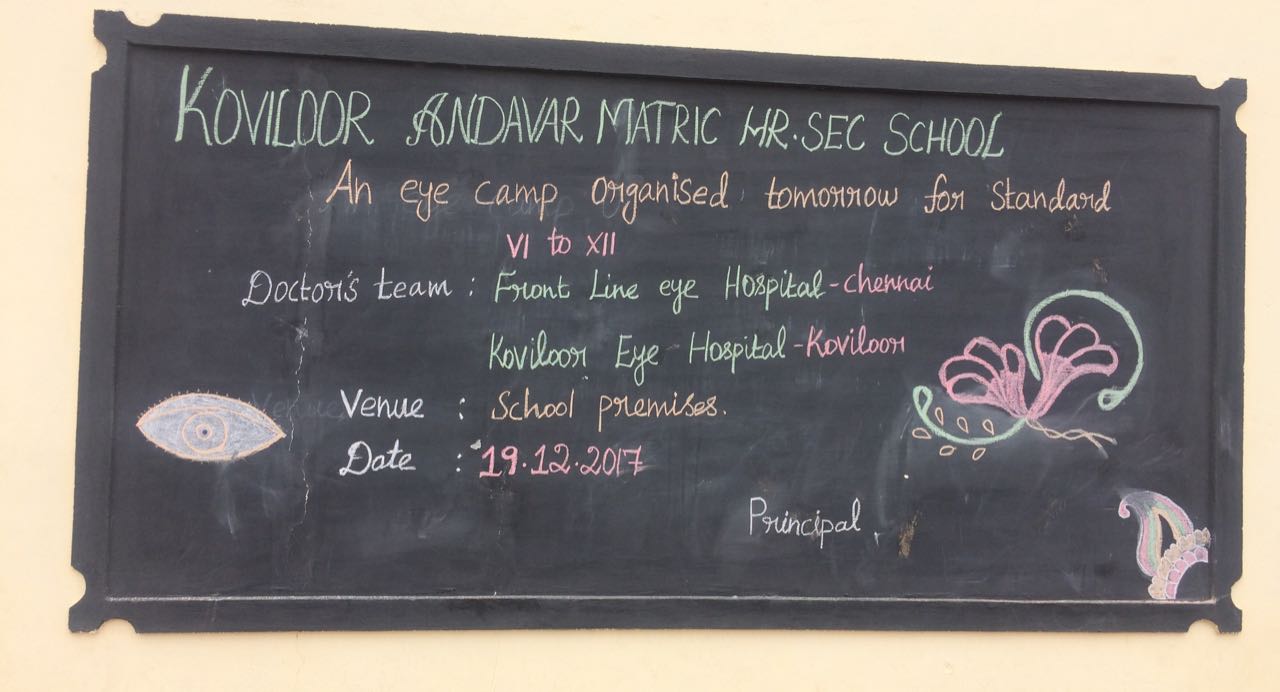 KOVILOOR ANDAVAR MATRIC HR.SEC SCHOOL
An eye camp organised tomorrow for standard
VI to XII
Doctor's team : Front Line eye Hospital-chennai
Koviloor Eye Hospital-Koviloor
Venue : School premises.
Date : 19.12.2017
Principal